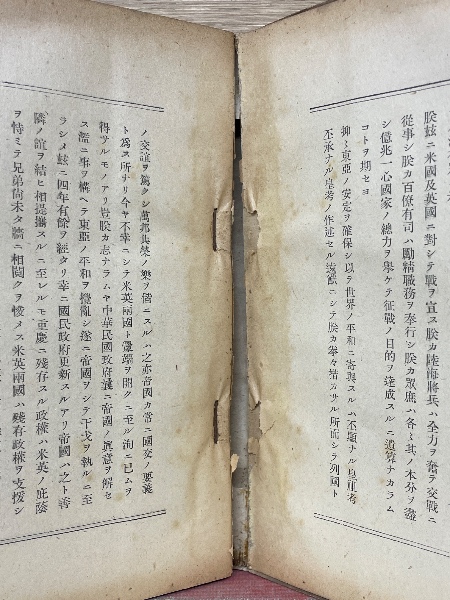 朕茲ニ米國及英國ニ對シテ戰ヲ宣ス朕カ陸海將兵ハ全力ヲ奮テ交戰ニ
從事シ朕カ百僚有司ハ勵精職務ヲ奉行シ朕カ眾庶ハ各〻其ノ本分ヲ盡
シ億兆一心國家ノ總力ヲ擧ケテ征戰ノ目的ヲ達成スルニ遺算ナカラム
コトヲ期セヨ
抑〻東亞ノ安定ヲ確保シ以テ世界ノ平和ニ寄與スルハ丕顯ナル皇祖考
丕承ナル皇考ノ作述セル遠猷ニシテ朕カ拳々措カサル所而シテ列國ト
ノ交誼ヲ篤クシ萬邦共榮ノ樂ヲ偕ニスルハ之亦帝國カ常ニ國交ノ要義
ト爲ス所ナリ今ヤ不幸ニシテ米英兩國ト釁端ヲ開クニ至ル洵ニ已ムヲ
得サルモノアリ豈朕カ志ナラムヤ中華民國政府曩ニ帝國ノ眞意ヲ解セ
ス濫ニ事ヲ構ヘテ東亞ノ平和ヲ攪亂シ遂ニ帝國ヲシテ干戈ヲ執ルニ至
ラシメ茲ニ四年有餘ヲ經タリ幸ニ國民政府更新スルアリ帝國ハ之ト善
隣ノ誼ヲ結ヒ相提攜スルニ至レルモ重慶ニ殘存スル政權ハ米英ノ庇蔭
ヲ恃ミテ兄弟尙未タ牆ニ相鬩クヲ悛メス米英兩國ハ殘存政權ヲ支援シ